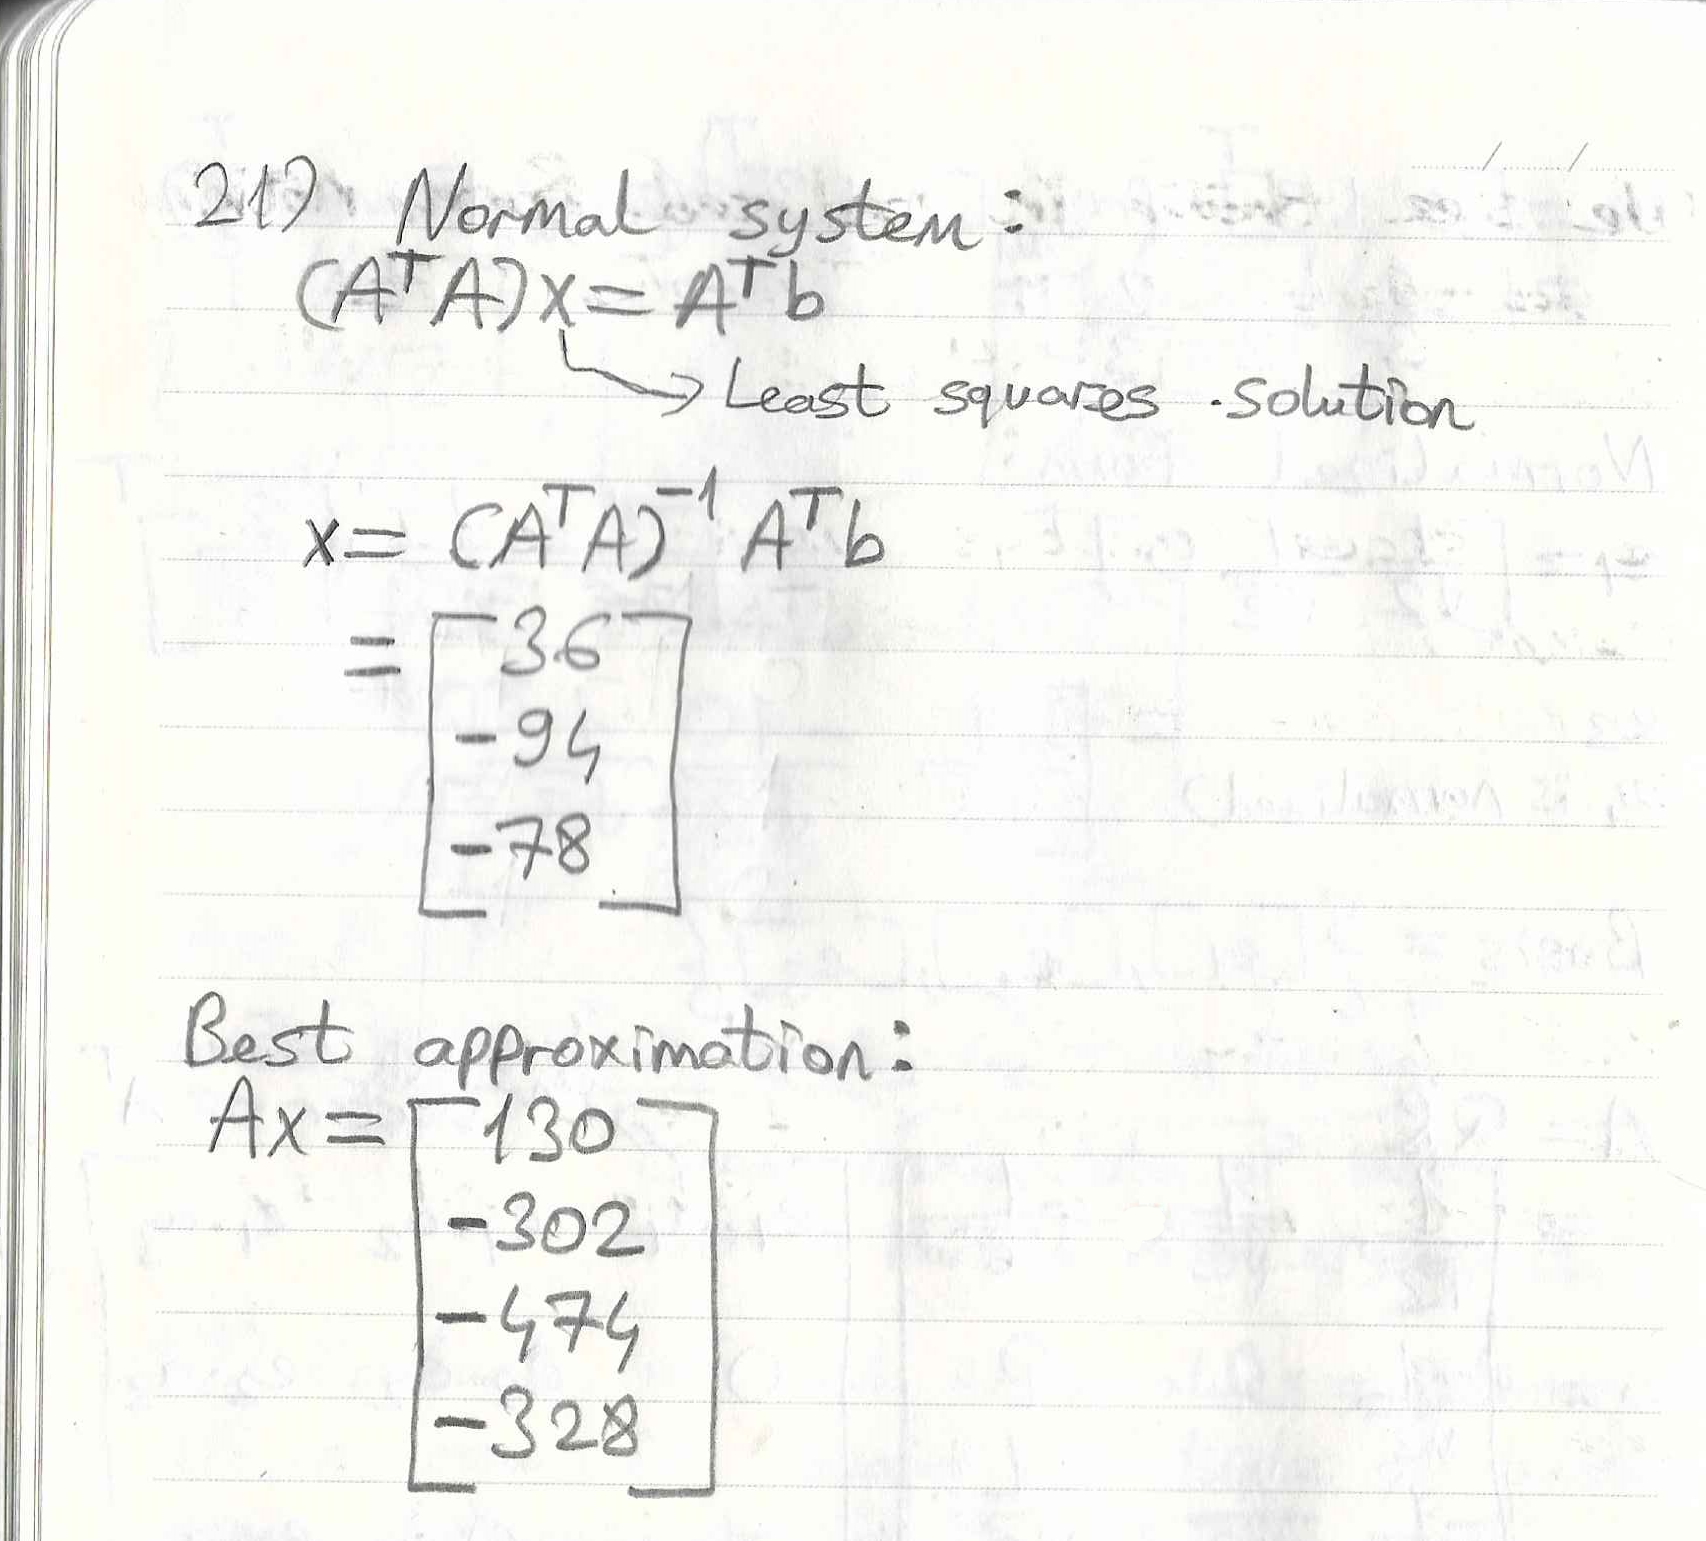 21) Normal system:
(AᵀA)x = Aᵀb
Least squares solution
x = (AᵀA)⁻¹ Aᵀb
= [36
-94
-78]
Best approximation:
Ax = [130
-302
-474
-328]